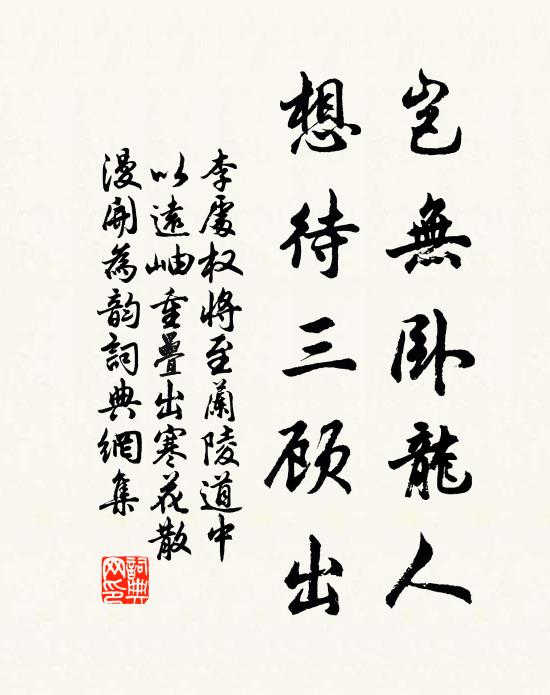 豈無卧龍人
想待三顾出
李處权將至蘭陵道中
以遠岫重疊出寒花散
漫開為韵詞典網集
詞典网印